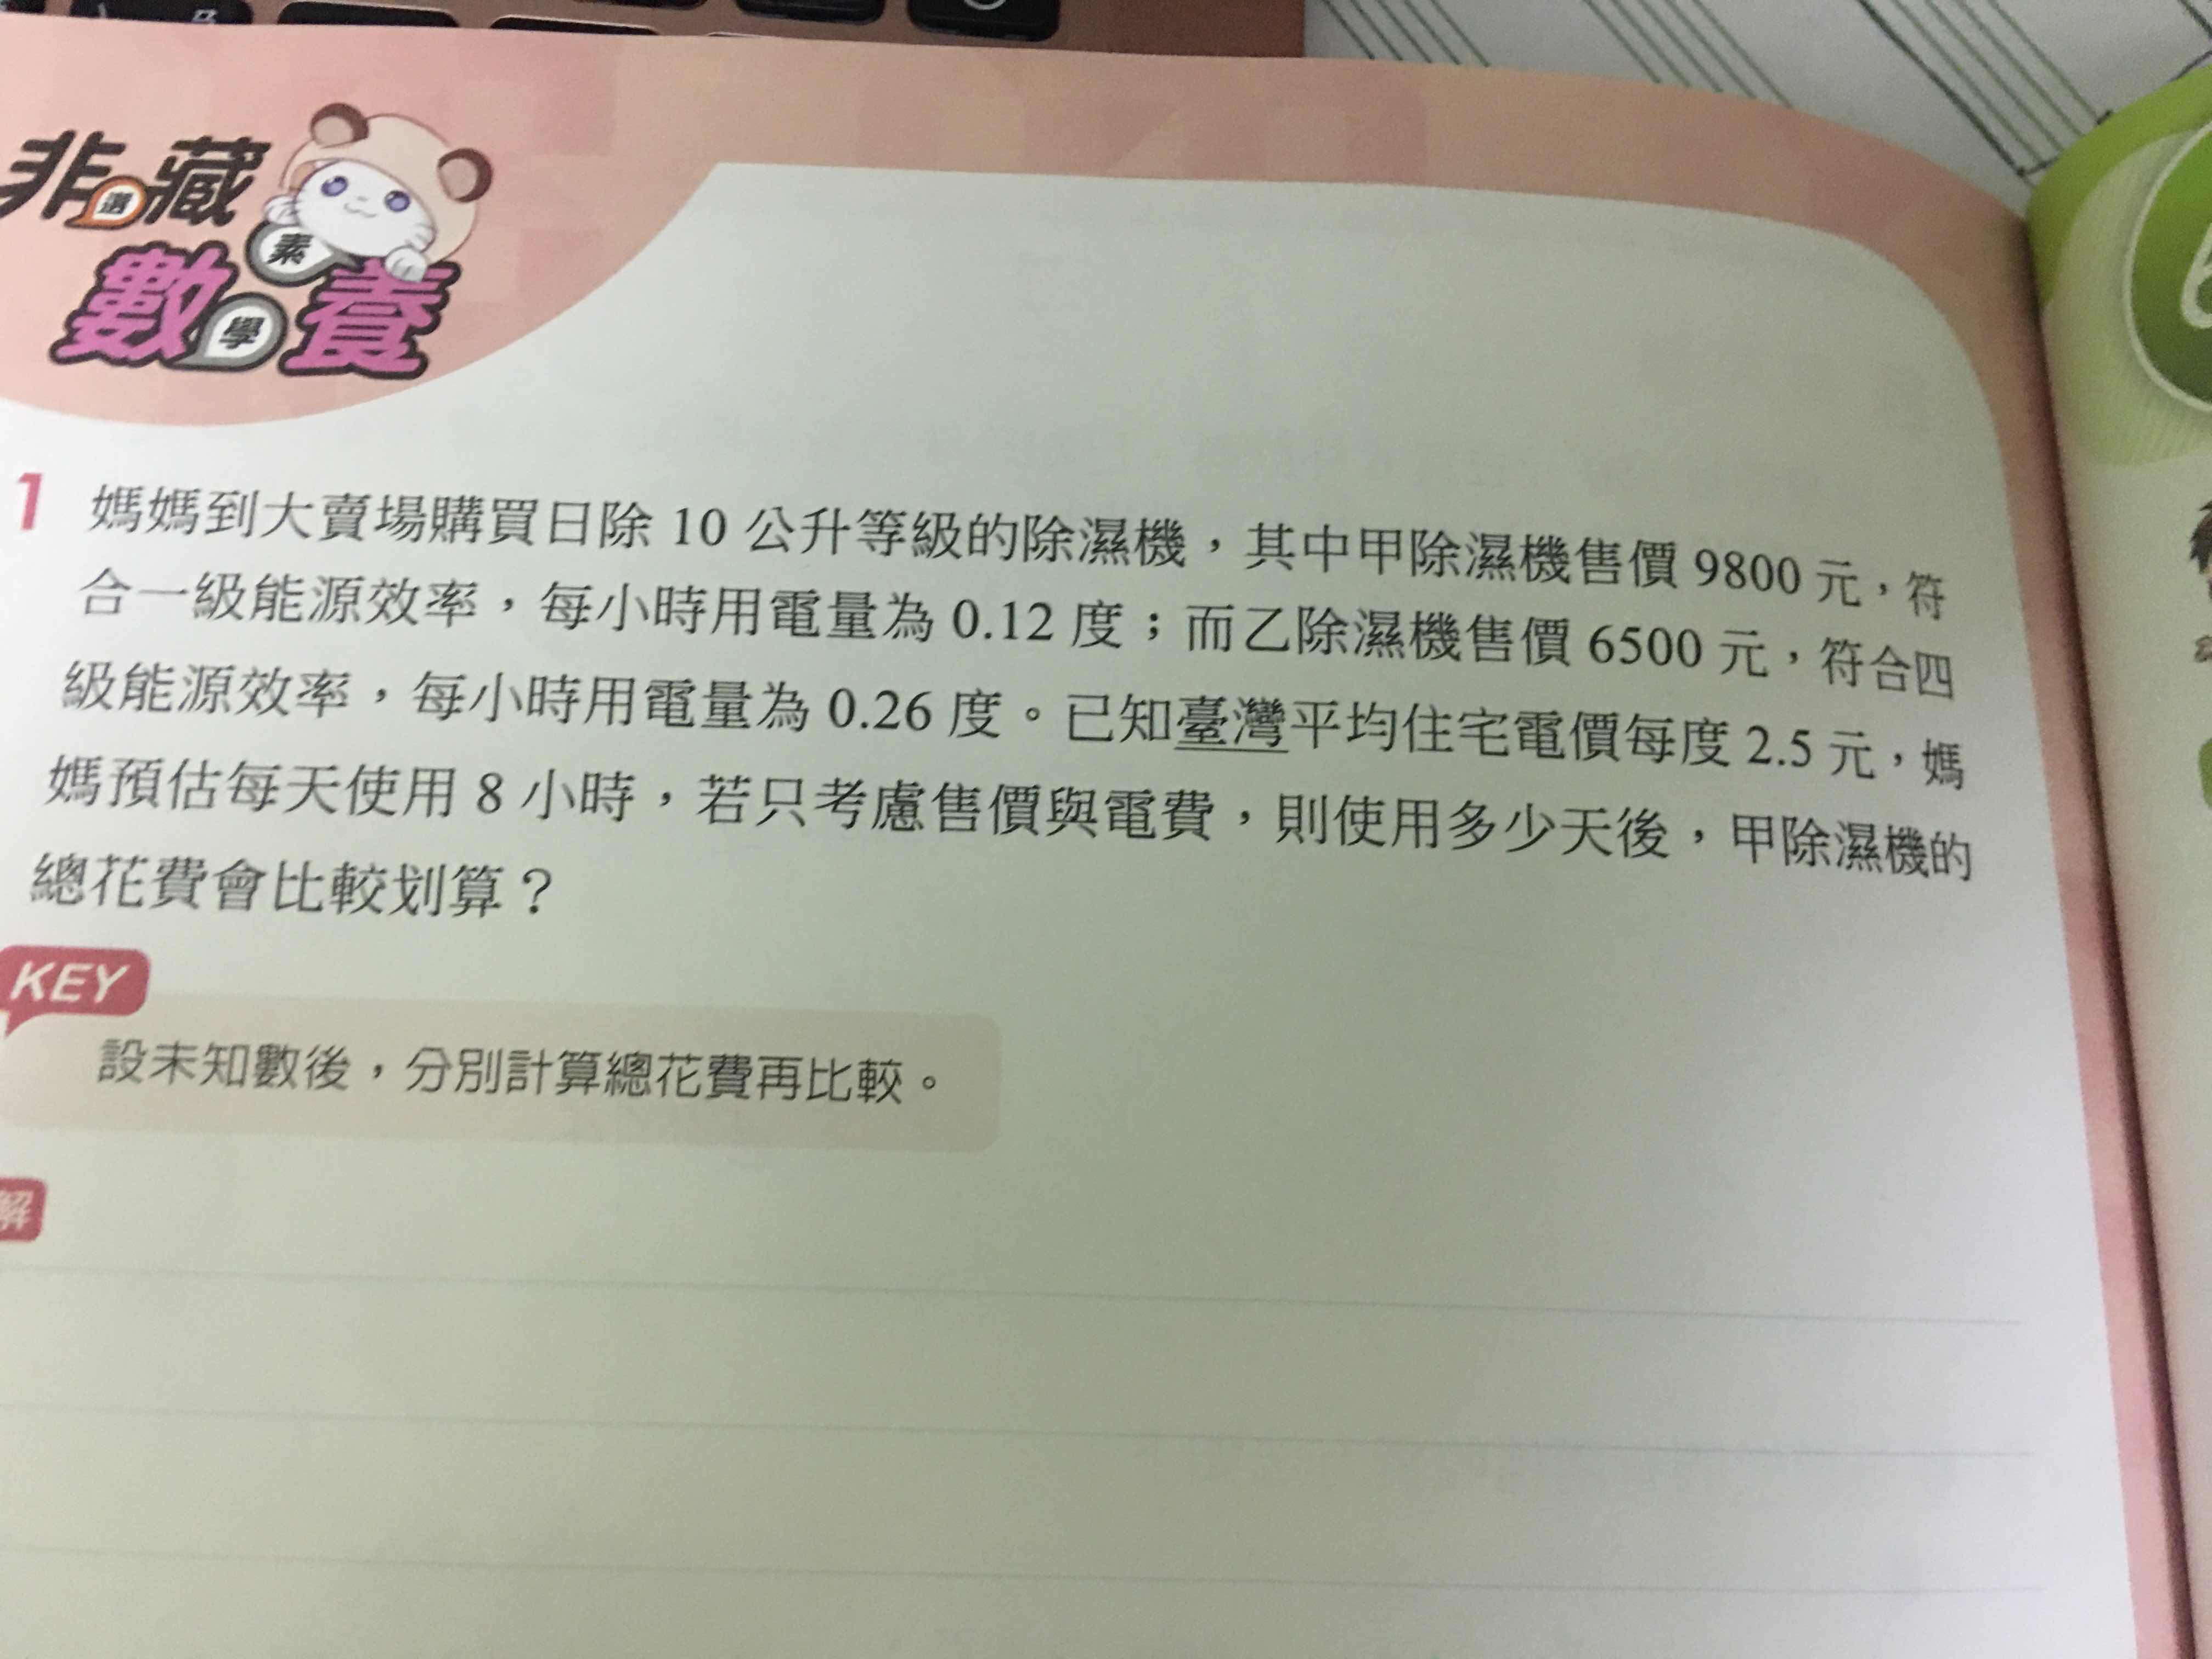 非選藏
數學素養
1 媽媽到大賣場購買日除 10 公升等級的除濕機，其中甲除濕機售價 9800 元，符
合一級能源效率，每小時用電量為 0.12 度；而乙除濕機售價 6500 元，符合四
級能源效率，每小時用電量為 0.26 度。已知臺灣平均住宅電價每度 2.5 元，媽
媽預估每天使用 8 小時，若只考慮售價與電費，則使用多少天後，甲除濕機的
總花費會比較划算？
KEY
設未知數後，分別計算總花費再比較。
解